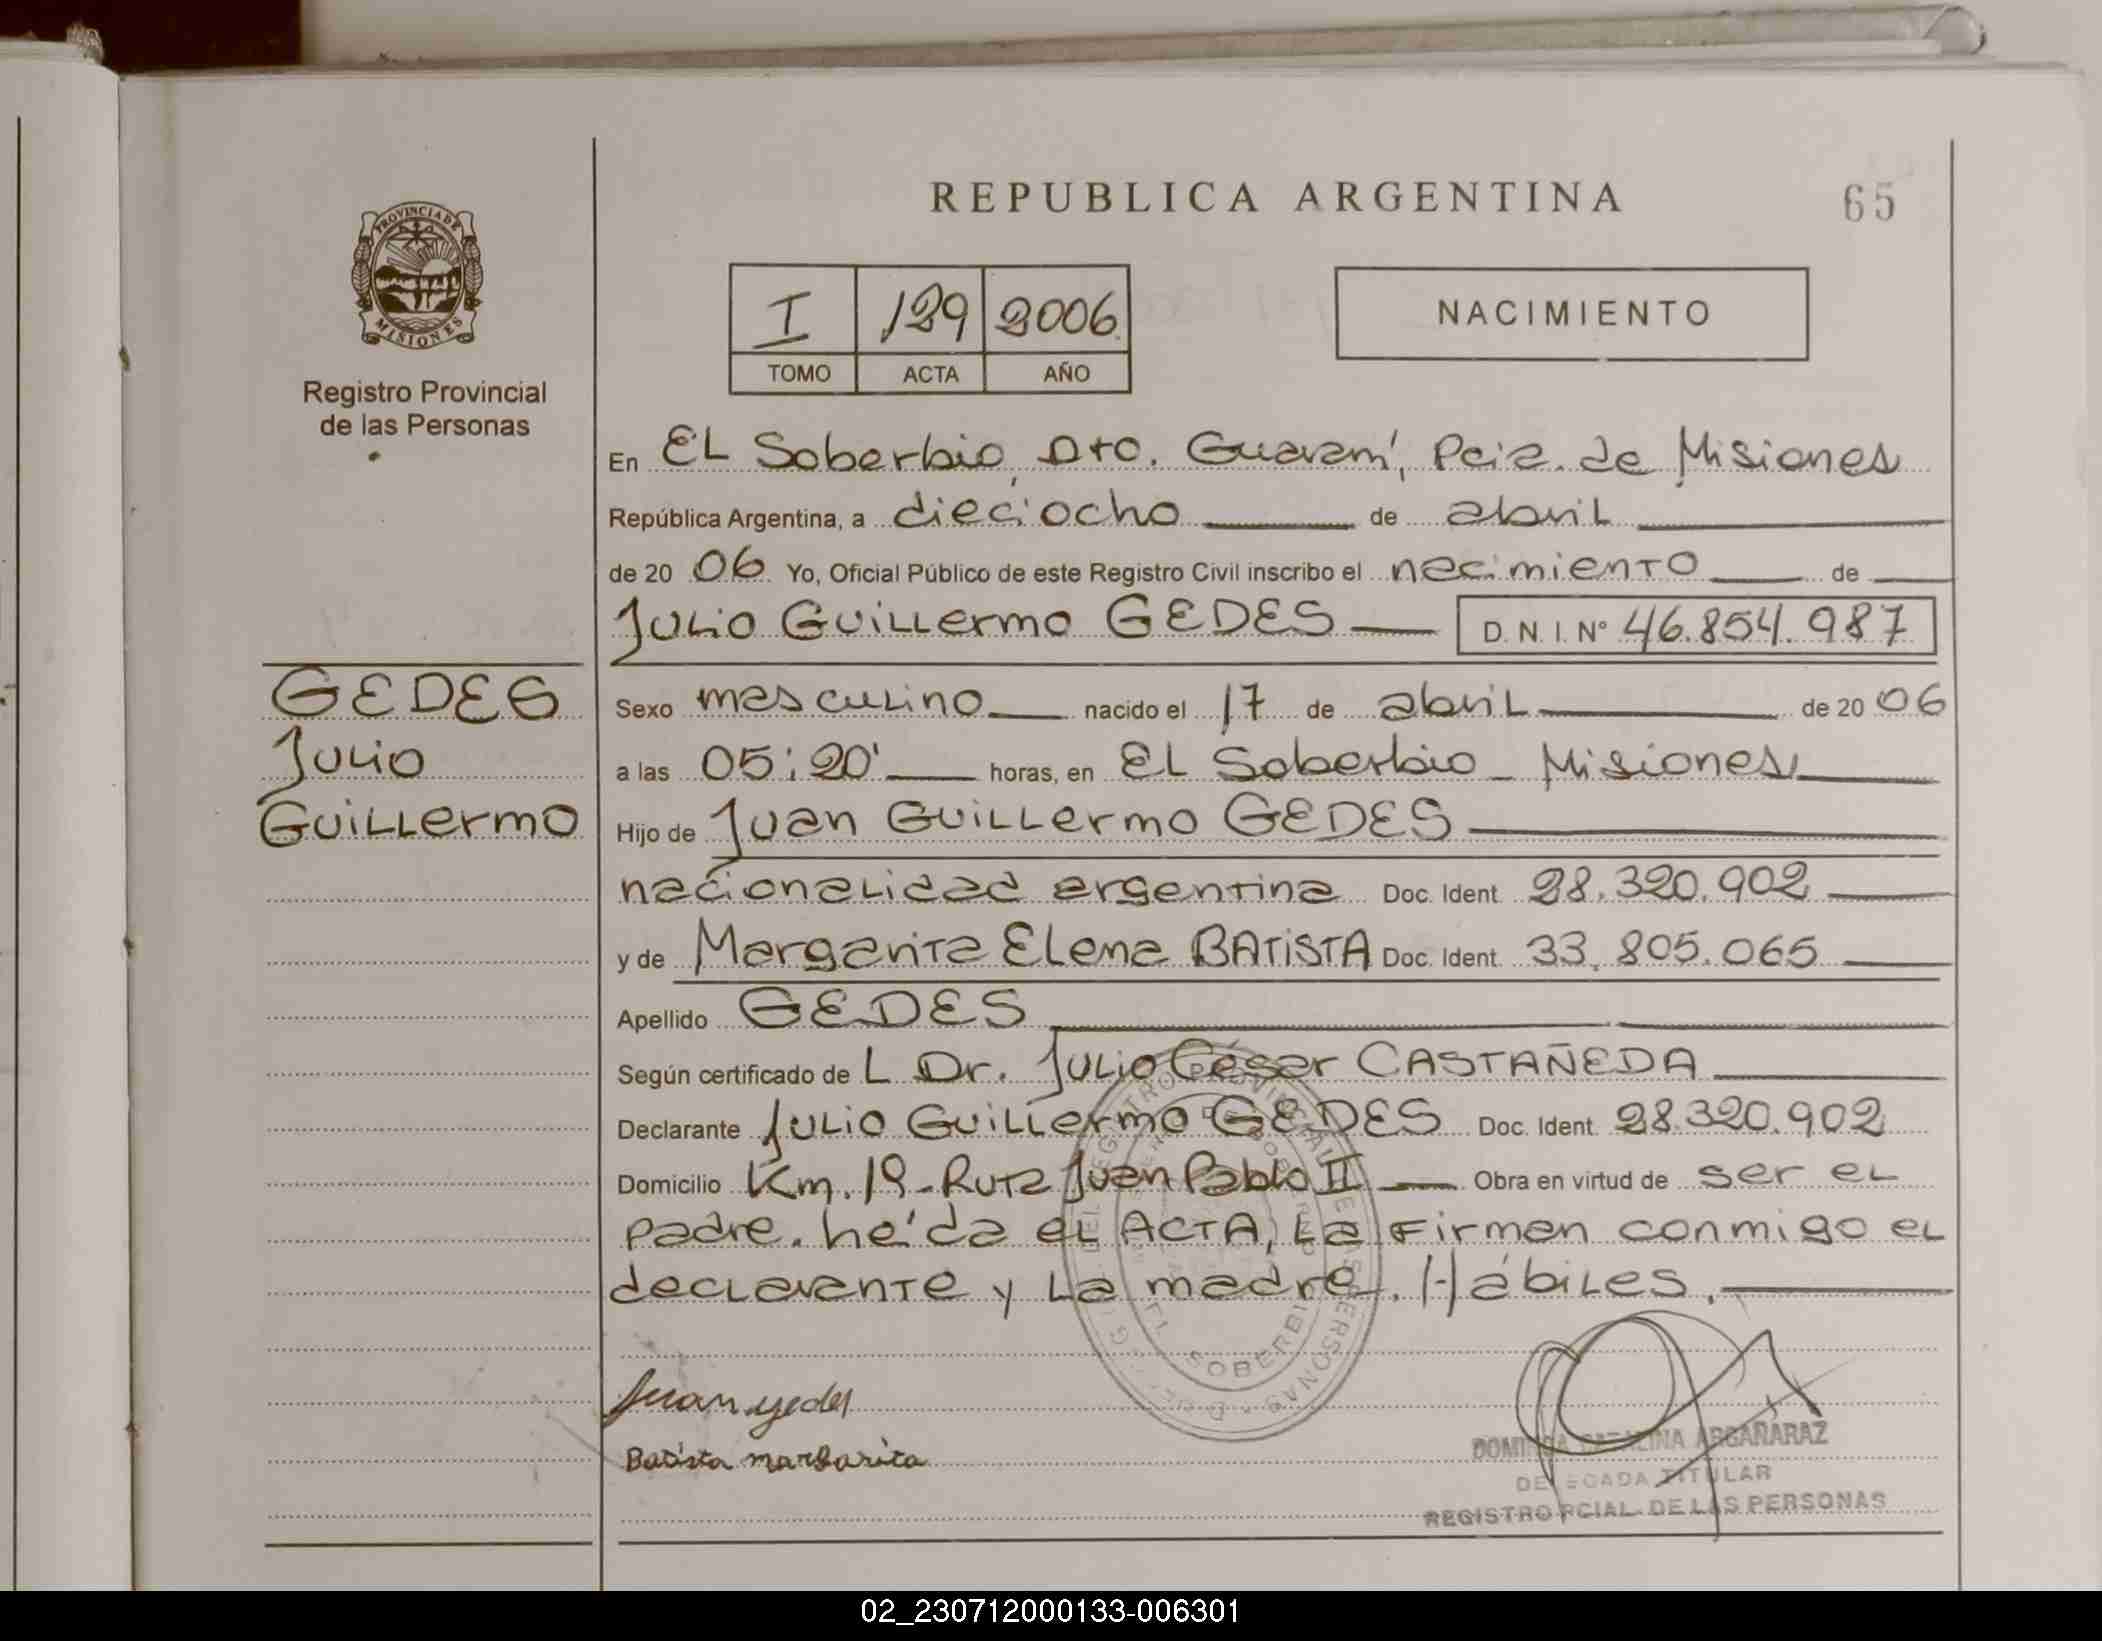 REPUBLICA ARGENTINA
65
PROVINCIA DE
MISIONES
Registro Provincial
de las Personas
I 129 2006
TOMO ACTA AÑO
NACIMIENTO
En EL Soberbio, Dto. Guaraní, Pcia. de Misiones
República Argentina, a dieciocho de abril
de 20 06 Yo, Oficial Público de este Registro Civil inscribo el nacimiento de
Julio Guillermo GEDES D. N. I. Nº 46.854.987
GEDES
Julio
Guillermo
Sexo masculino nacido el 17 de abril de 20 06
a las 05:20' horas, en EL Soberbio - Misiones
Hijo de Juan Guillermo GEDES
nacionalidad argentina Doc. Ident. 28.320.902
y de Margarita Elena BATISTA Doc. Ident. 33.805.065
Apellido GEDES
Según certificado de L Dr. Julio César CASTAÑEDA
Declarante Julio Guillermo GEDES Doc. Ident. 28.320.902
Domicilio Km. 19 - Ruta Juan Pablo II Obra en virtud de ser el
padre. Leída el ACTA, la firman conmigo el
declarante y la madre. Hábiles.
Juan gedes
Batista margarita
SOBERBI
DOMINGA CATALINA ARGAÑARAZ
DELEGADA TITULAR
REGISTRO PCIAL. DE LAS PERSONAS
02_230712000133-006301